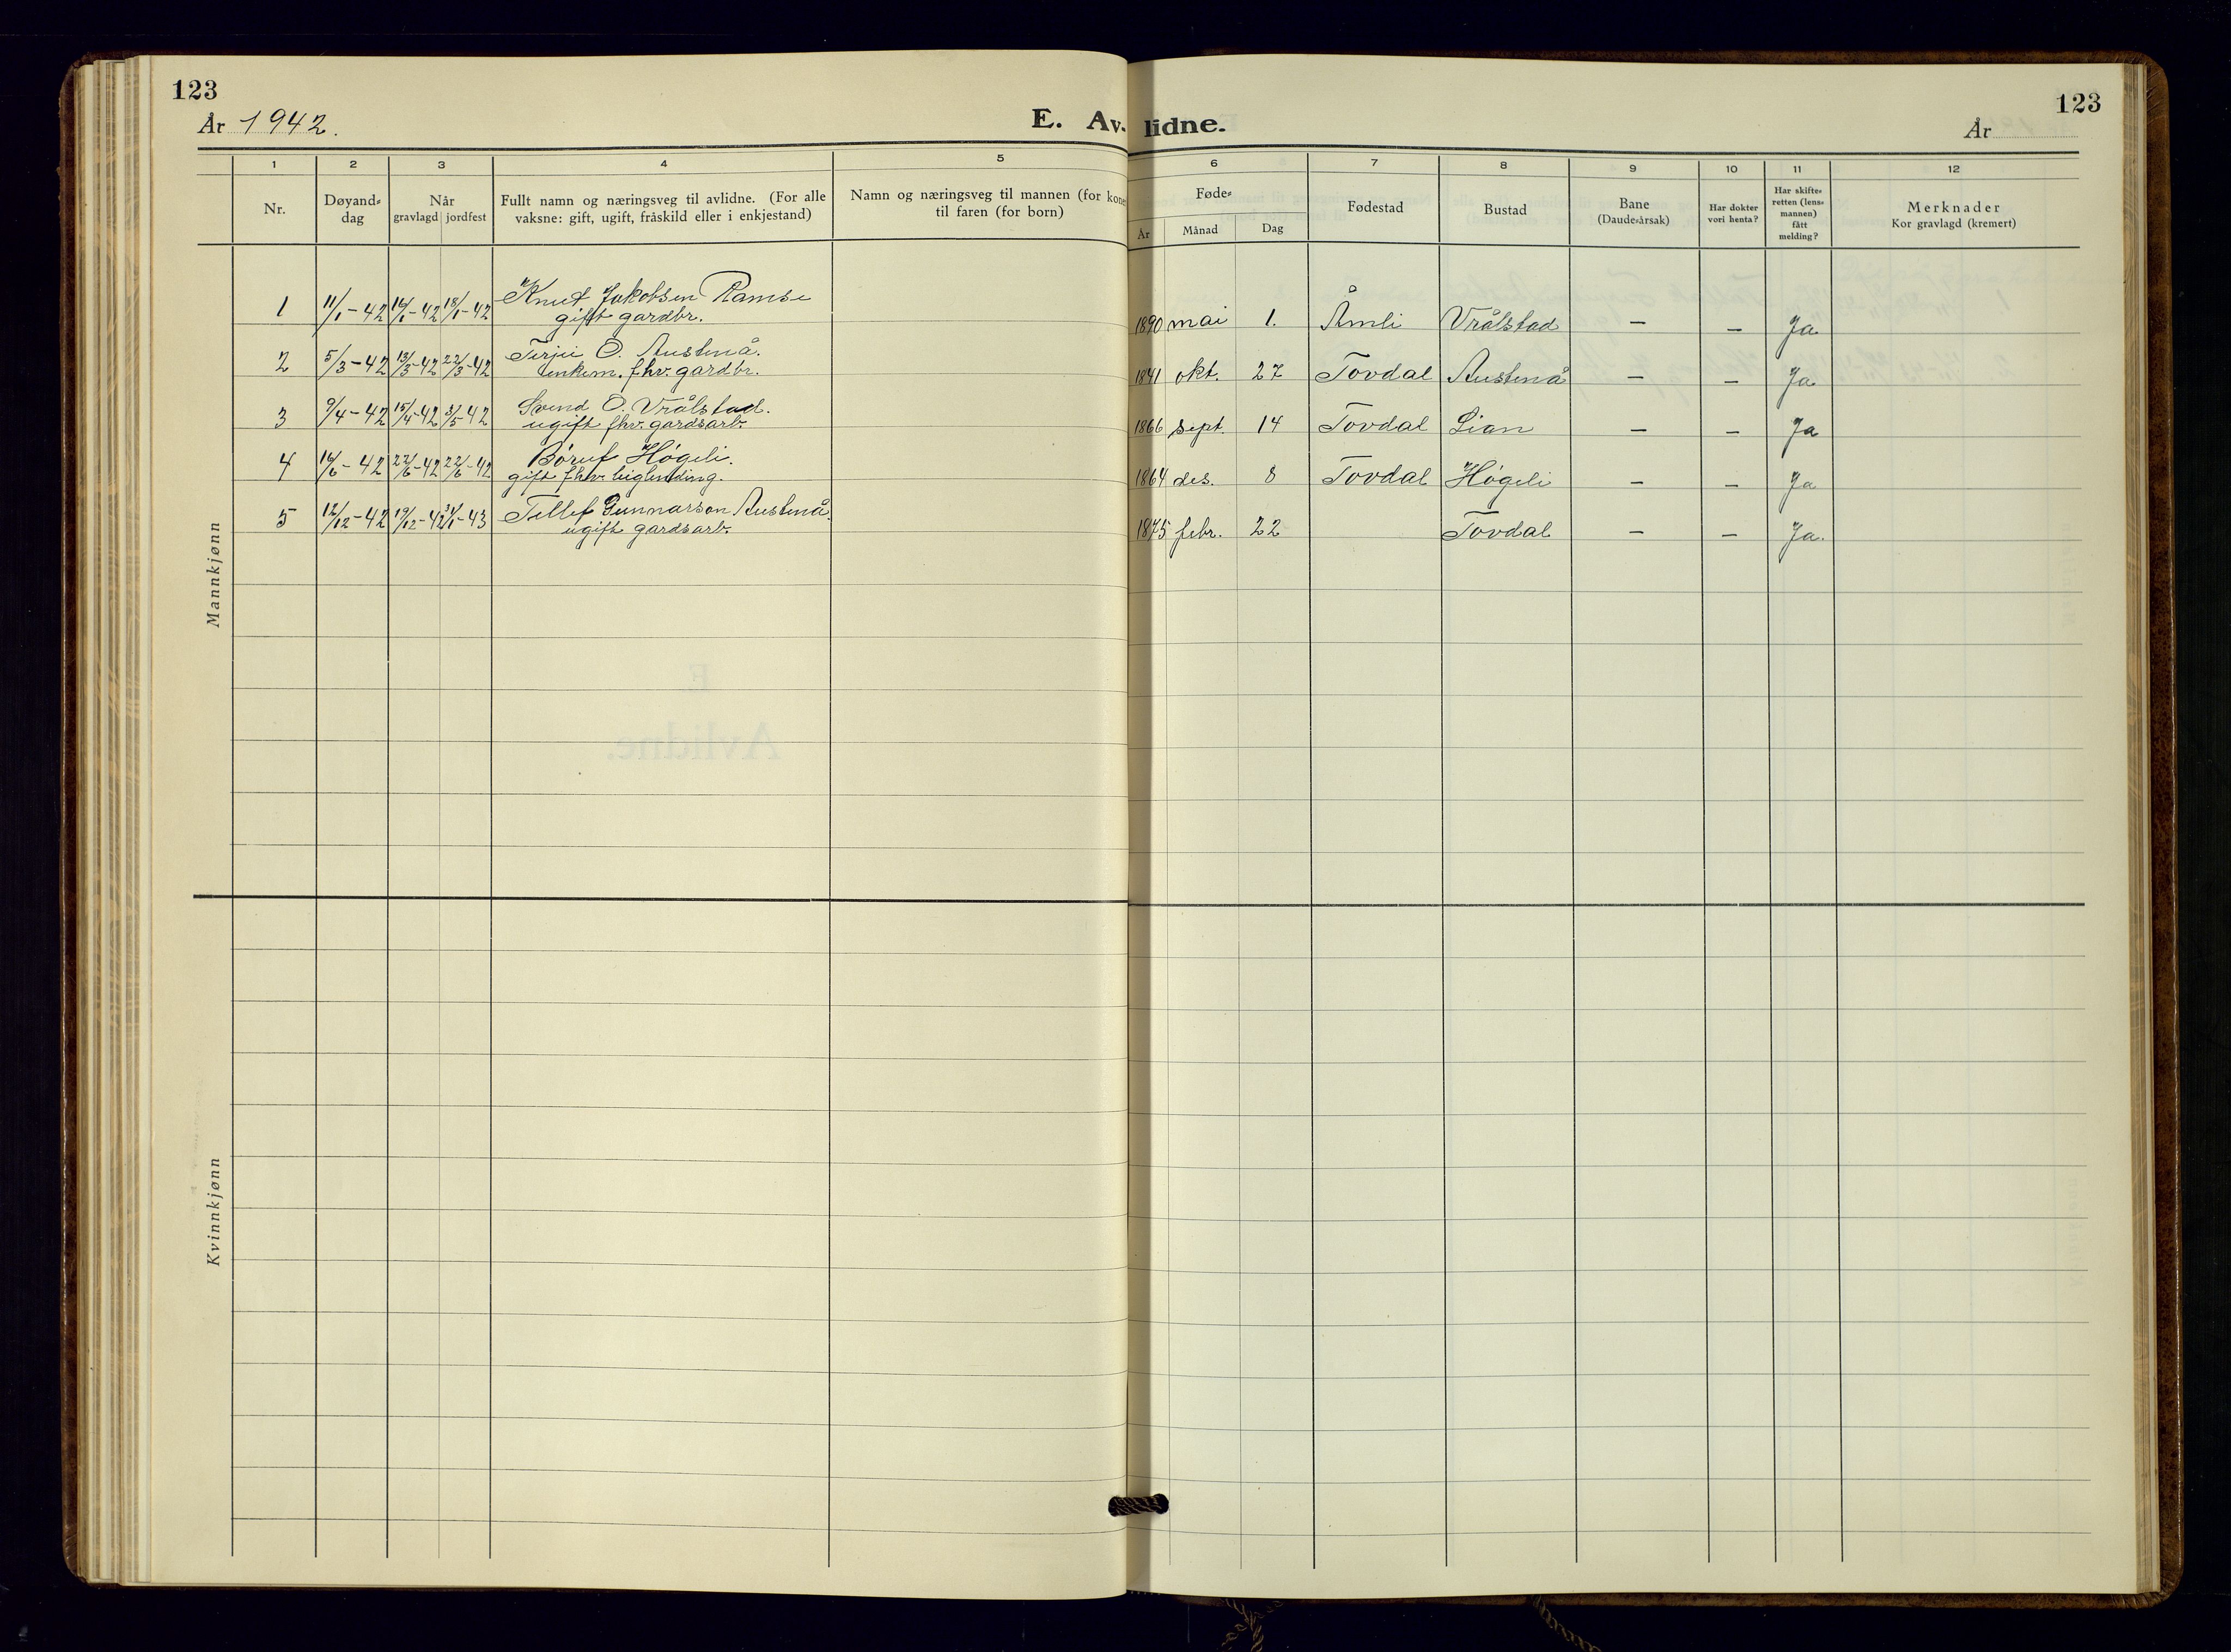 123
123
År 1942.
E. Av-lidne.
År
1 2 3 4 5 6 7 8 9 10 11 12
Nr.
Døyand-dag
Når
gravlagd jordfest
Fullt namn og næringsveg til avlidne. (For alle
vaksne: gift, ugift, fråskild eller i enkjestand)
Namn og næringsveg til mannen (for kone
til faren (for born)
Føde-
År Månad Dag
Fødestad
Bustad
Bane
(Daude-årsak)
Har dokter
vori henta?
Har skifte-
retten (lens-
mannen)
fått
melding?
Merknader
Kor gravlagd (kremert)
Mannkjønn
1 11/1-42 16/1-42 18/1-42 Knut Jakobsen Ramse
gift gardbr. 1890 mai 1. Åmli Vrålstad – – Ja
2 5/3-42 13/3-42 22/3-42 Terjei O. Austenå.
enkem. fhv. gardbr. 1841 okt. 27 Tovdal Austenå – – Ja
3 9/4-42 15/4-42 3/5-42 Svend O. Vrålstad.
ugift fhv. gardsarb. 1866 sept. 14 Tovdal Lian – – Ja
4 16/6-42 22/6-42 22/6-42 Høgeli.
gift fhv. leiglending. 1864 des. 8 Tovdal Høgeli – – Ja
5 12/12-42 19/12-42 31/1-43 Tellef Gunnarson Austenå.
ugift gardsarb. 1875 febr. 22 Tovdal – – Ja.
Kvinnkjønn